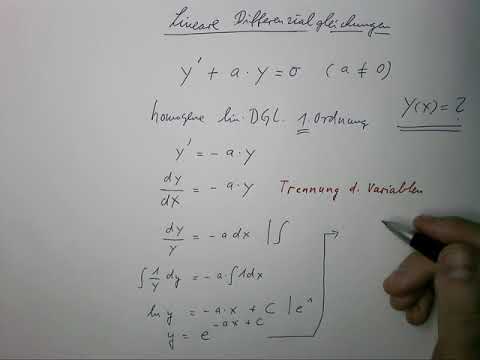 Lineare Differenzialgleichungen
y' + a · y = 0 (a ≠ 0)
homogene lin. DGL. 1. Ordnung y(x) = ?
y' = -a · y
dy/dx = -a · y Trennung d. Variablen
dy/y = -a dx | ∫
∫ 1/y dy = -a · ∫ 1 dx
ln y = -a · x + C | e^
y = e^{-ax + C}